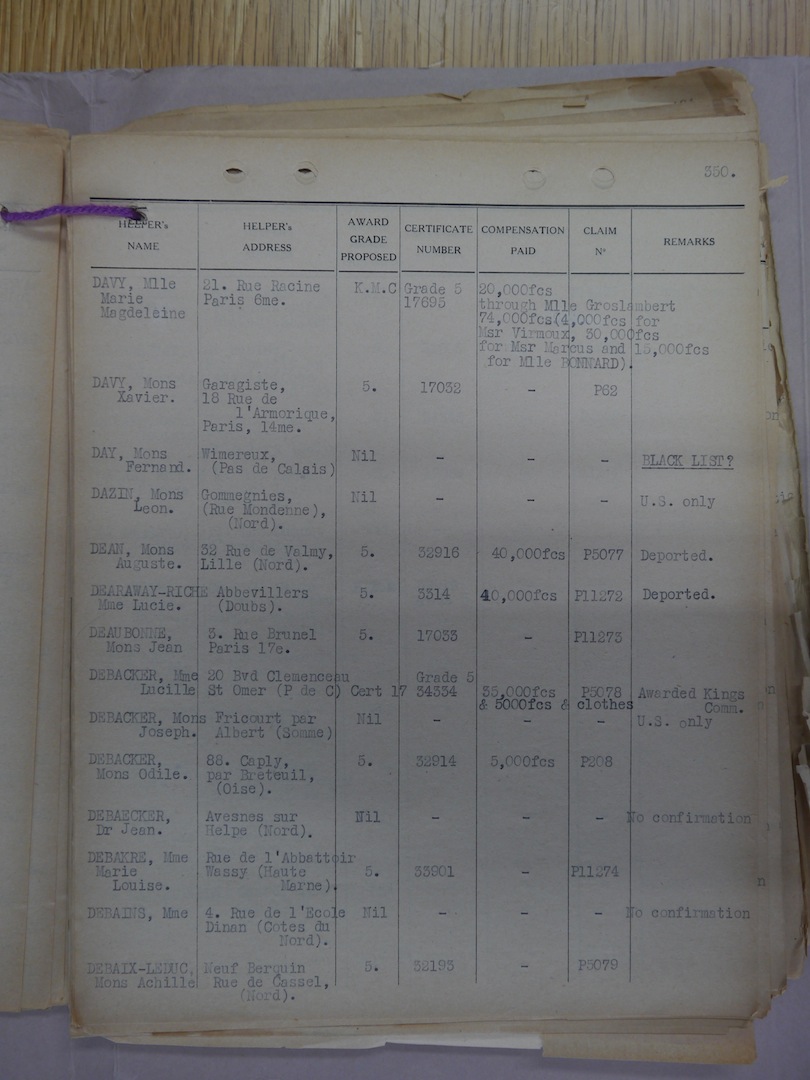 350.
HELPER's NAME | HELPER's ADDRESS | AWARD GRADE PROPOSED | CERTIFICATE NUMBER | COMPENSATION PAID | CLAIM Nº | REMARKS
DAVY, Mlle | 21. Rue Racine | K.M.C | Grade 5 | 20,000fcs
Marie | Paris 6me. | 17695 | through Mlle Groslambert
Magdeleine | 74,000fcs(4,000fcs for
Msr Virmoux, 30,000fcs
for Msr Marcus and 15,000fcs
for Mlle BONNARD).
DAVY, Mons | Garagiste, | 5. | 17032 | - | P62
Xavier. | 18 Rue de
l'Armorique,
Paris, 14me.
DAY, Mons | Wimereux, | Nil | - | - | - | BLACK LIST?
Fernand. | (Pas de Calais)
DAZIN, Mons | Gommegnies, | Nil | - | - | - | U.S. only
Leon. | (Rue Mondenne),
(Nord).
DEAN, Mons | 32 Rue de Valmy, | 5. | 32916 | 40,000fcs | P5077 | Deported.
Auguste. | Lille (Nord).
DEARAWAY-RICHE | Abbevillers | 5. | 3314 | 40,000fcs | P11272 | Deported.
Mme Lucie. | (Doubs).
DEAUBONNE, | 3. Rue Brunel | 5. | 17033 | - | P11273
Mons Jean | Paris 17e.
DEBACKER, Mme | 20 Bvd Clemenceau | Grade 5
Lucille | St Omer (P de C) | Cert 17 | 34334 | 35,000fcs | P5078 | Awarded Kings
& 5000fcs & clothes | Comm.
DEBACKER, Mons | Fricourt par | Nil | - | - | - | U.S. only
Joseph. | Albert (Somme)
DEBACKER, | 88. Caply, | 5. | 32914 | 5,000fcs | P208
Mons Odile. | par Breteuil,
(Oise).
DEBAECKER, | Avesnes sur | Nil | - | - | - | No confirmation
Dr Jean. | Helpe (Nord).
DEBAKRE, Mme | Rue de l'Abbattoir
Marie | Wassy (Haute | 5. | 33901 | - | P11274
Louise. | Marne)
DEBAINS, Mme | 4. Rue de l'Ecole | Nil | - | - | - | No confirmation
Dinan (Cotes du
Nord).
DEBAIX-LEDUC, | Neuf Berquin | 5. | 32193 | - | P5079
Mons Achille | Rue de Cassel,
(Nord).